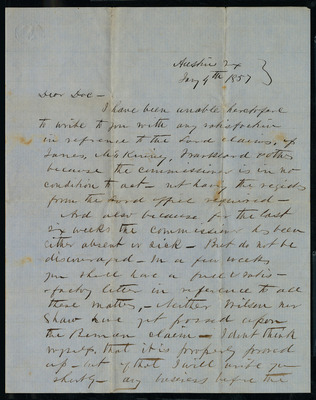 Austin Tx
Jany 9th 1857
Dear Doc —
I have been unable heretofore
to write to you with any satisfaction
in reference to the Land claims, of
James, McKinney, & others
because the commissioner is in no
condition to act — not having the
from the Land office required —
And also because for the last
six weeks the commissioner has been
either absent or sick — But do not be
discouraged — In a few weeks
you shall have a full & satis-
factory letter in reference to all
these matters, — Neither Wilson nor
Shaw have yet passed upon
the claim — I dont think
myself, that it is properly proved
up — but of that I will write you
shortly — any business before the